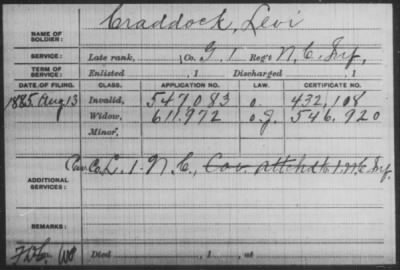 Craddock, Levi
NAME OF SOLDIER:
SERVICE: Late rank, Co. G 1 Reg't N. C. Inf,
TERM OF SERVICE: Enlisted , 1 Discharged , 1
DATE OF FILING. CLASS. APPLICATION NO. LAW. CERTIFICATE NO.
1885 Aug 13 Invalid, 547083 o. 432,108
Widow, 611,972 o.g. 546,920
Minor,
ADDITIONAL SERVICES: Co. L. 1 - N. C., Cav. attchd to 1. N.C. Inf.
REMARKS:
Died , 1 , at